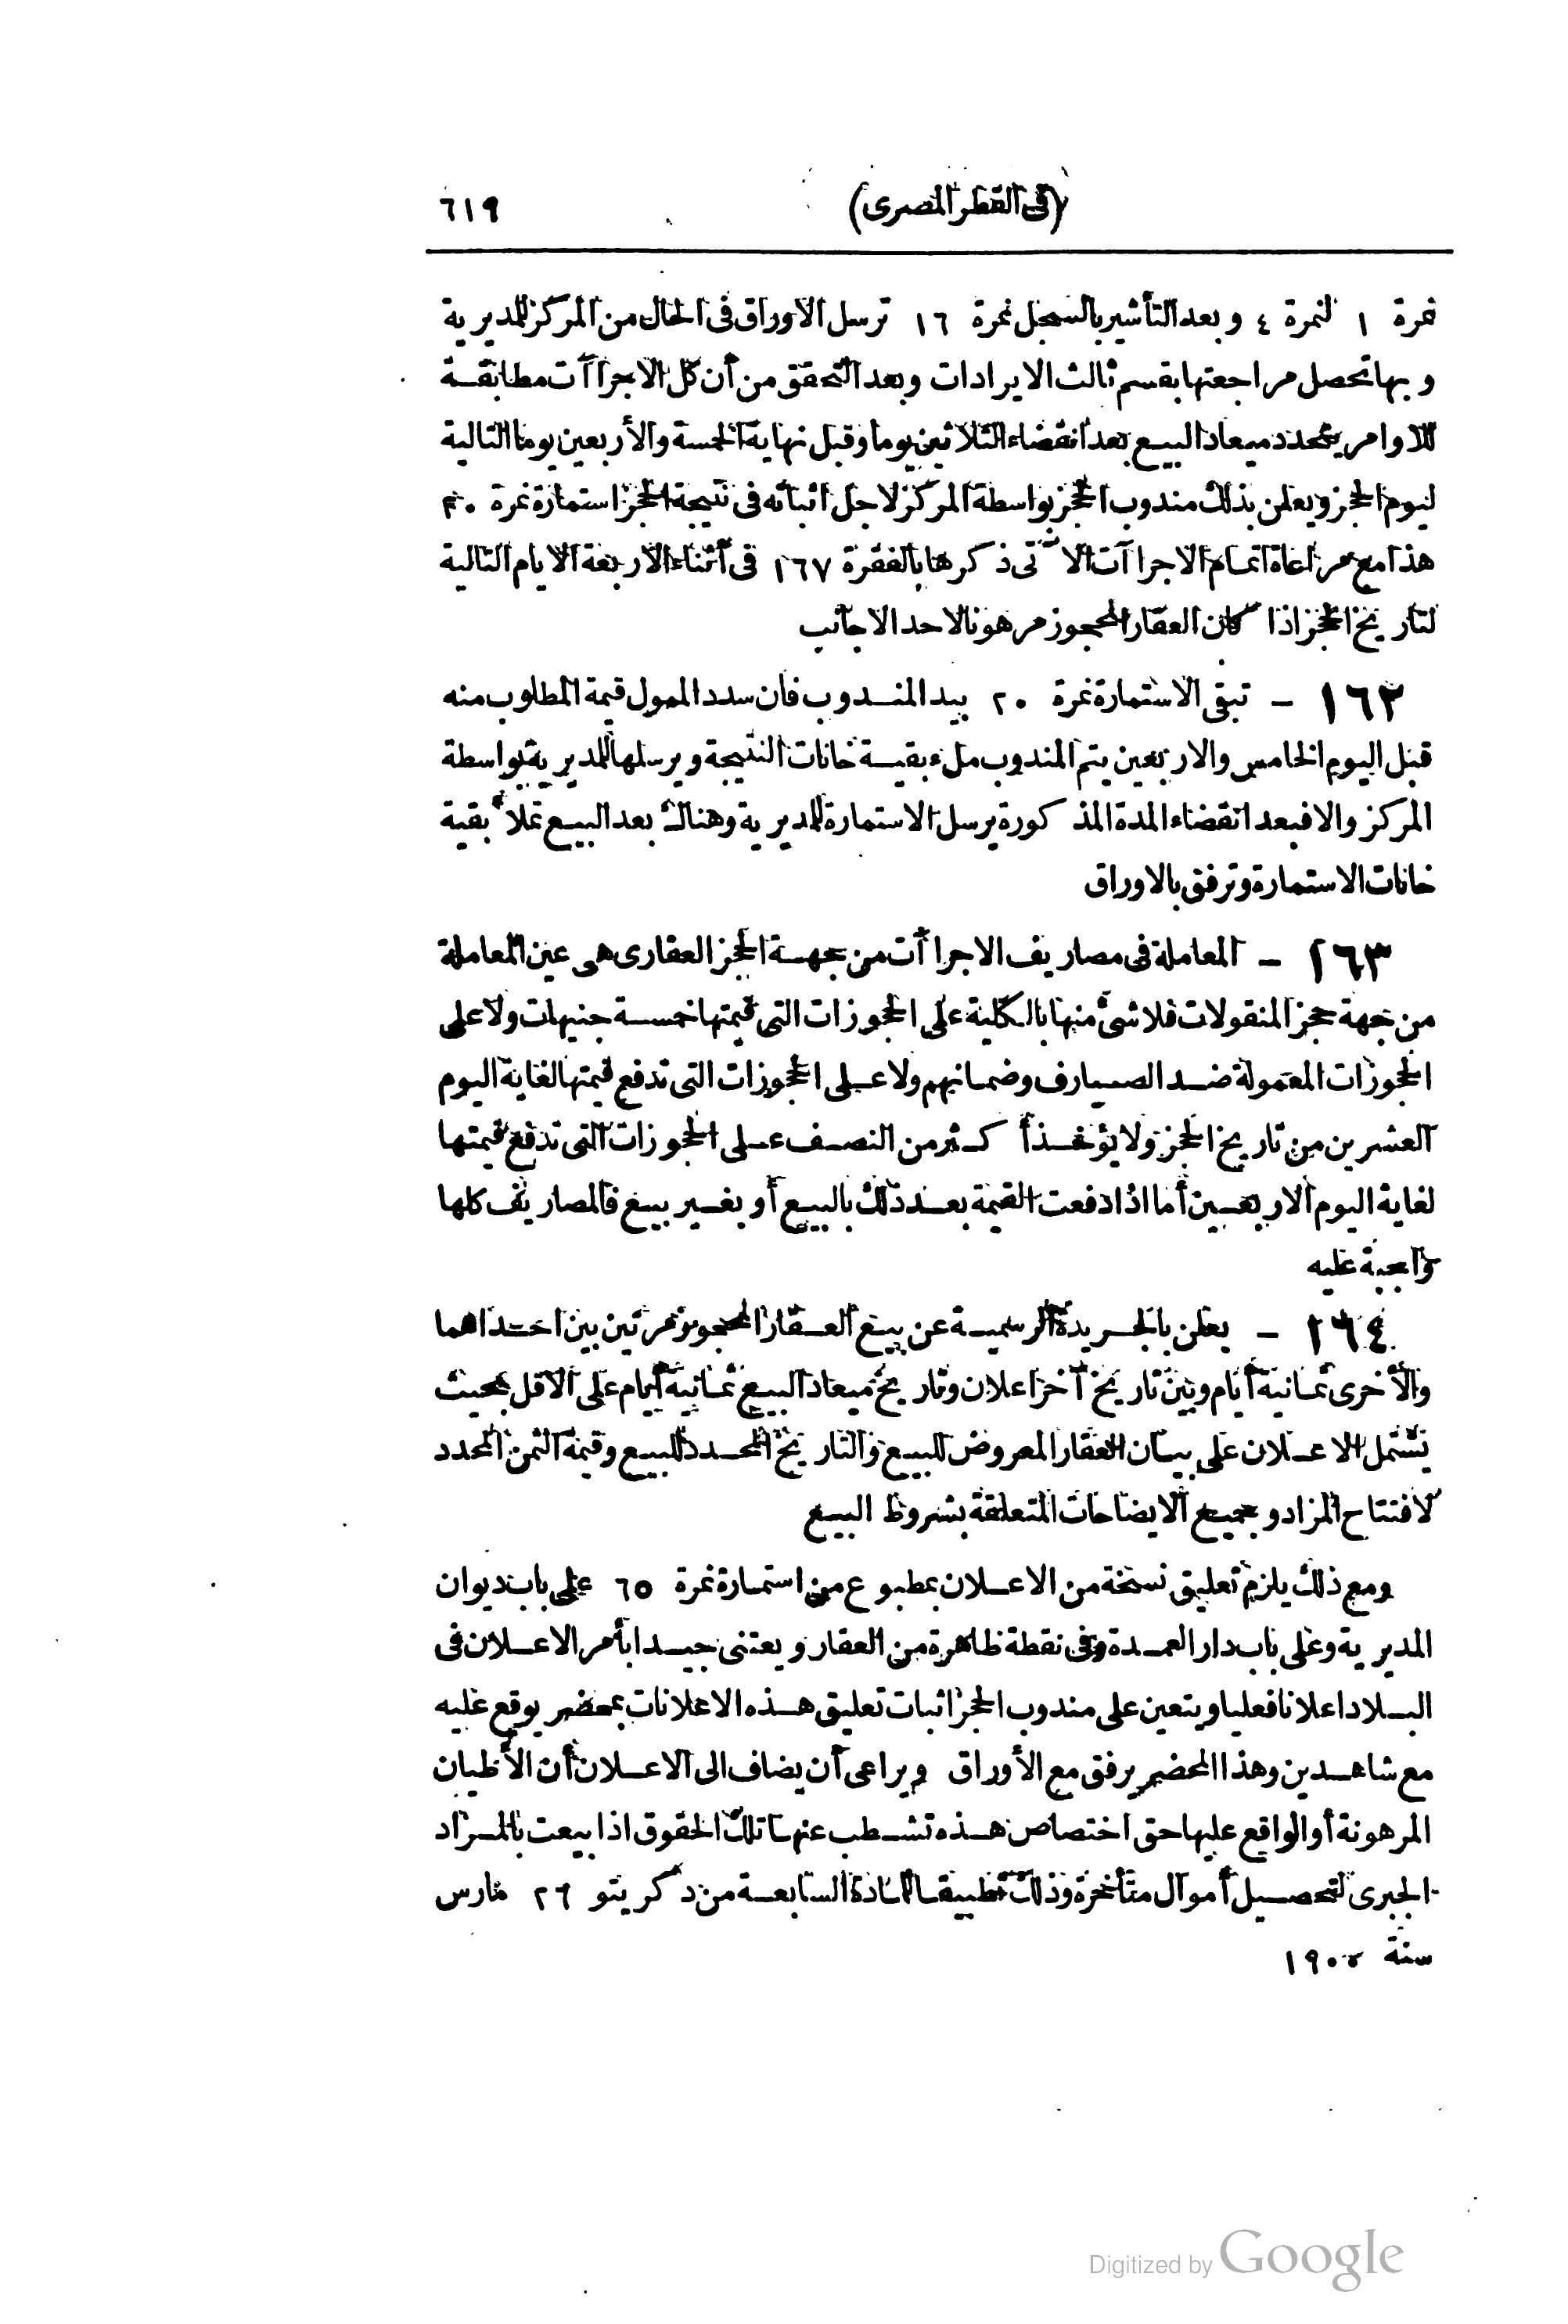 (فى القطر المصرى) ٦١٩
نمرة ١ لنمرة ٤ وبعد التأشير بالسجل نمرة ١٦ ترسل الاوراق فى الحال من المركز للمديرية
وبها تحصل مراجعتها بقسم ثالث الايرادات وبعد التحقق من أن كل الاجراآت مطابقة
للاوامر يتحدد ميعاد البيع بعد انقضاء الثلاثين يوما وقبل نهاية الخمسة والأربعين يوما التالية
ليوم الحجز ويعلن بذلك مندوب الحجز بواسطة المركز لاجل اثباته فى نتيجة الحجز استمارة نمرة
هذا مع مراعاة اتمام الاجراآت الآتى ذكرها بالفقرة ١٦٧ فى أثناء الاربعة الايام التالية
لتاريخ الحجز اذا كان العقار المحجوز مرهونا لاحد الاجانب
١٦٢ – تبقى الاستمارة نمرة ٢٠ بيد المندوب فان سدد الممول قيمة المطلوب منه
قبل اليوم الخامس والاربعين يتم المندوب ملء بقية خانات النتيجة ويرسلها للمديرية بواسطة
المركز والا فبعد انقضاء المدة المذكورة يرسل الاستمارة للمديرية وهناك بعد البيع تملأ بقية
خانات الاستمارة وترفق بالاوراق
١٦٣ – المعاملة فى مصاريف الاجراآت من جهة الحجز العقارى هى عين المعاملة
من جهة حجز المنقولات فلا شئ منها بالكلية على الحجوزات التى قيمتها خمسة جنيهات ولا على
الحجوزات المعمولة ضد الصيارف وضمانيهم ولا على الحجوزات التى تدفع قيمتها لغاية اليوم
العشرين من تاريخ الحجز ولا يؤخذ أكثر من النصف على الحجوزات التى تدفع قيمتها
لغاية اليوم الاربعين أما اذا دفعت القيمة بعد ذلك بالبيع أو بغير بيع فالمصاريف كلها
واجبة عليه
١٦٤ – يعلن بالجريدة الرسمية عن بيع العقار المحجوز مرتين بين احداهما
والأخرى ثمانية أيام وبين تاريخ آخر اعلان وتاريخ ميعاد البيع ثمانية أيام على الاقل بحيث
يشتمل الاعلان على بيان العقار المعروض للبيع والتاريخ المحدد للبيع وقيمة الثمن المحدد
لافتتاح المزاد وجميع الايضاحات المتعلقة بشروط البيع
ومع ذلك يلزم تعليق نسخة من الاعلان بمطبوع من استمارة نمرة ٦٥ على باب ديوان
المديرية وعلى باب دار العمدة وفى نقطة ظاهرة من العقار ويعتنى جيدا بأمر الاعلان فى
البلاد اعلانا فعليا ويتعين على مندوب الحجز اثبات تعليق هذه الاعلانات بمحضر يوقع عليه
مع شاهدين وهذا المحضر يرفق مع الأوراق ويراعى أن يضاف الى الاعلان أن الأطيان
المرهونة أو الواقع عليها حق اختصاص هذه تشطب عنها تلك الحقوق اذا بيعت بالمزاد
الجبرى لتحصيل أموال متأخرة وذلك تطبيقا للمادة السابعة من دكريتو ٢٦ مارس
سنة ١٩٠٠
Digitized by Google